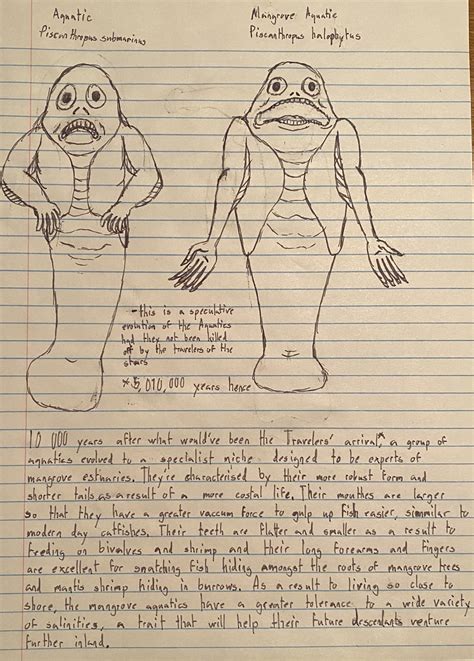 Aquatic
Piscanthropus submarinus
Mangrove Aquatic
Piscanthropus halophytus
- this is a speculative
evolution of the Aquatics
had they not been killed
off by the travelers of the
stars
*5,010,000 years hence
10 000 years after what would've been the Travelers' arrival,* a group of
aquatics evolved to a specialist niche designed to be experts of
mangrove estuaries. They're characterised by their more robust form and
shorter tails as a result of a more costal life. Their mouthes are larger
so that they have a greater vaccum force to gulp up fish easier, simmilar to
modern day catfishes. Their teeth are flatter and smaller as a result to
feeding on bivalves and shrimp and their long forearms and fingers
are excellent for snatching fish hiding amongst the roots of mangrove trees
and mantis shrimp hiding in burrows. As a result to living so close to
shore, the mangrove aquatics have a greater tolerance to a wide variety
of salinities, a trait that will help their future descendants venture
further inland.